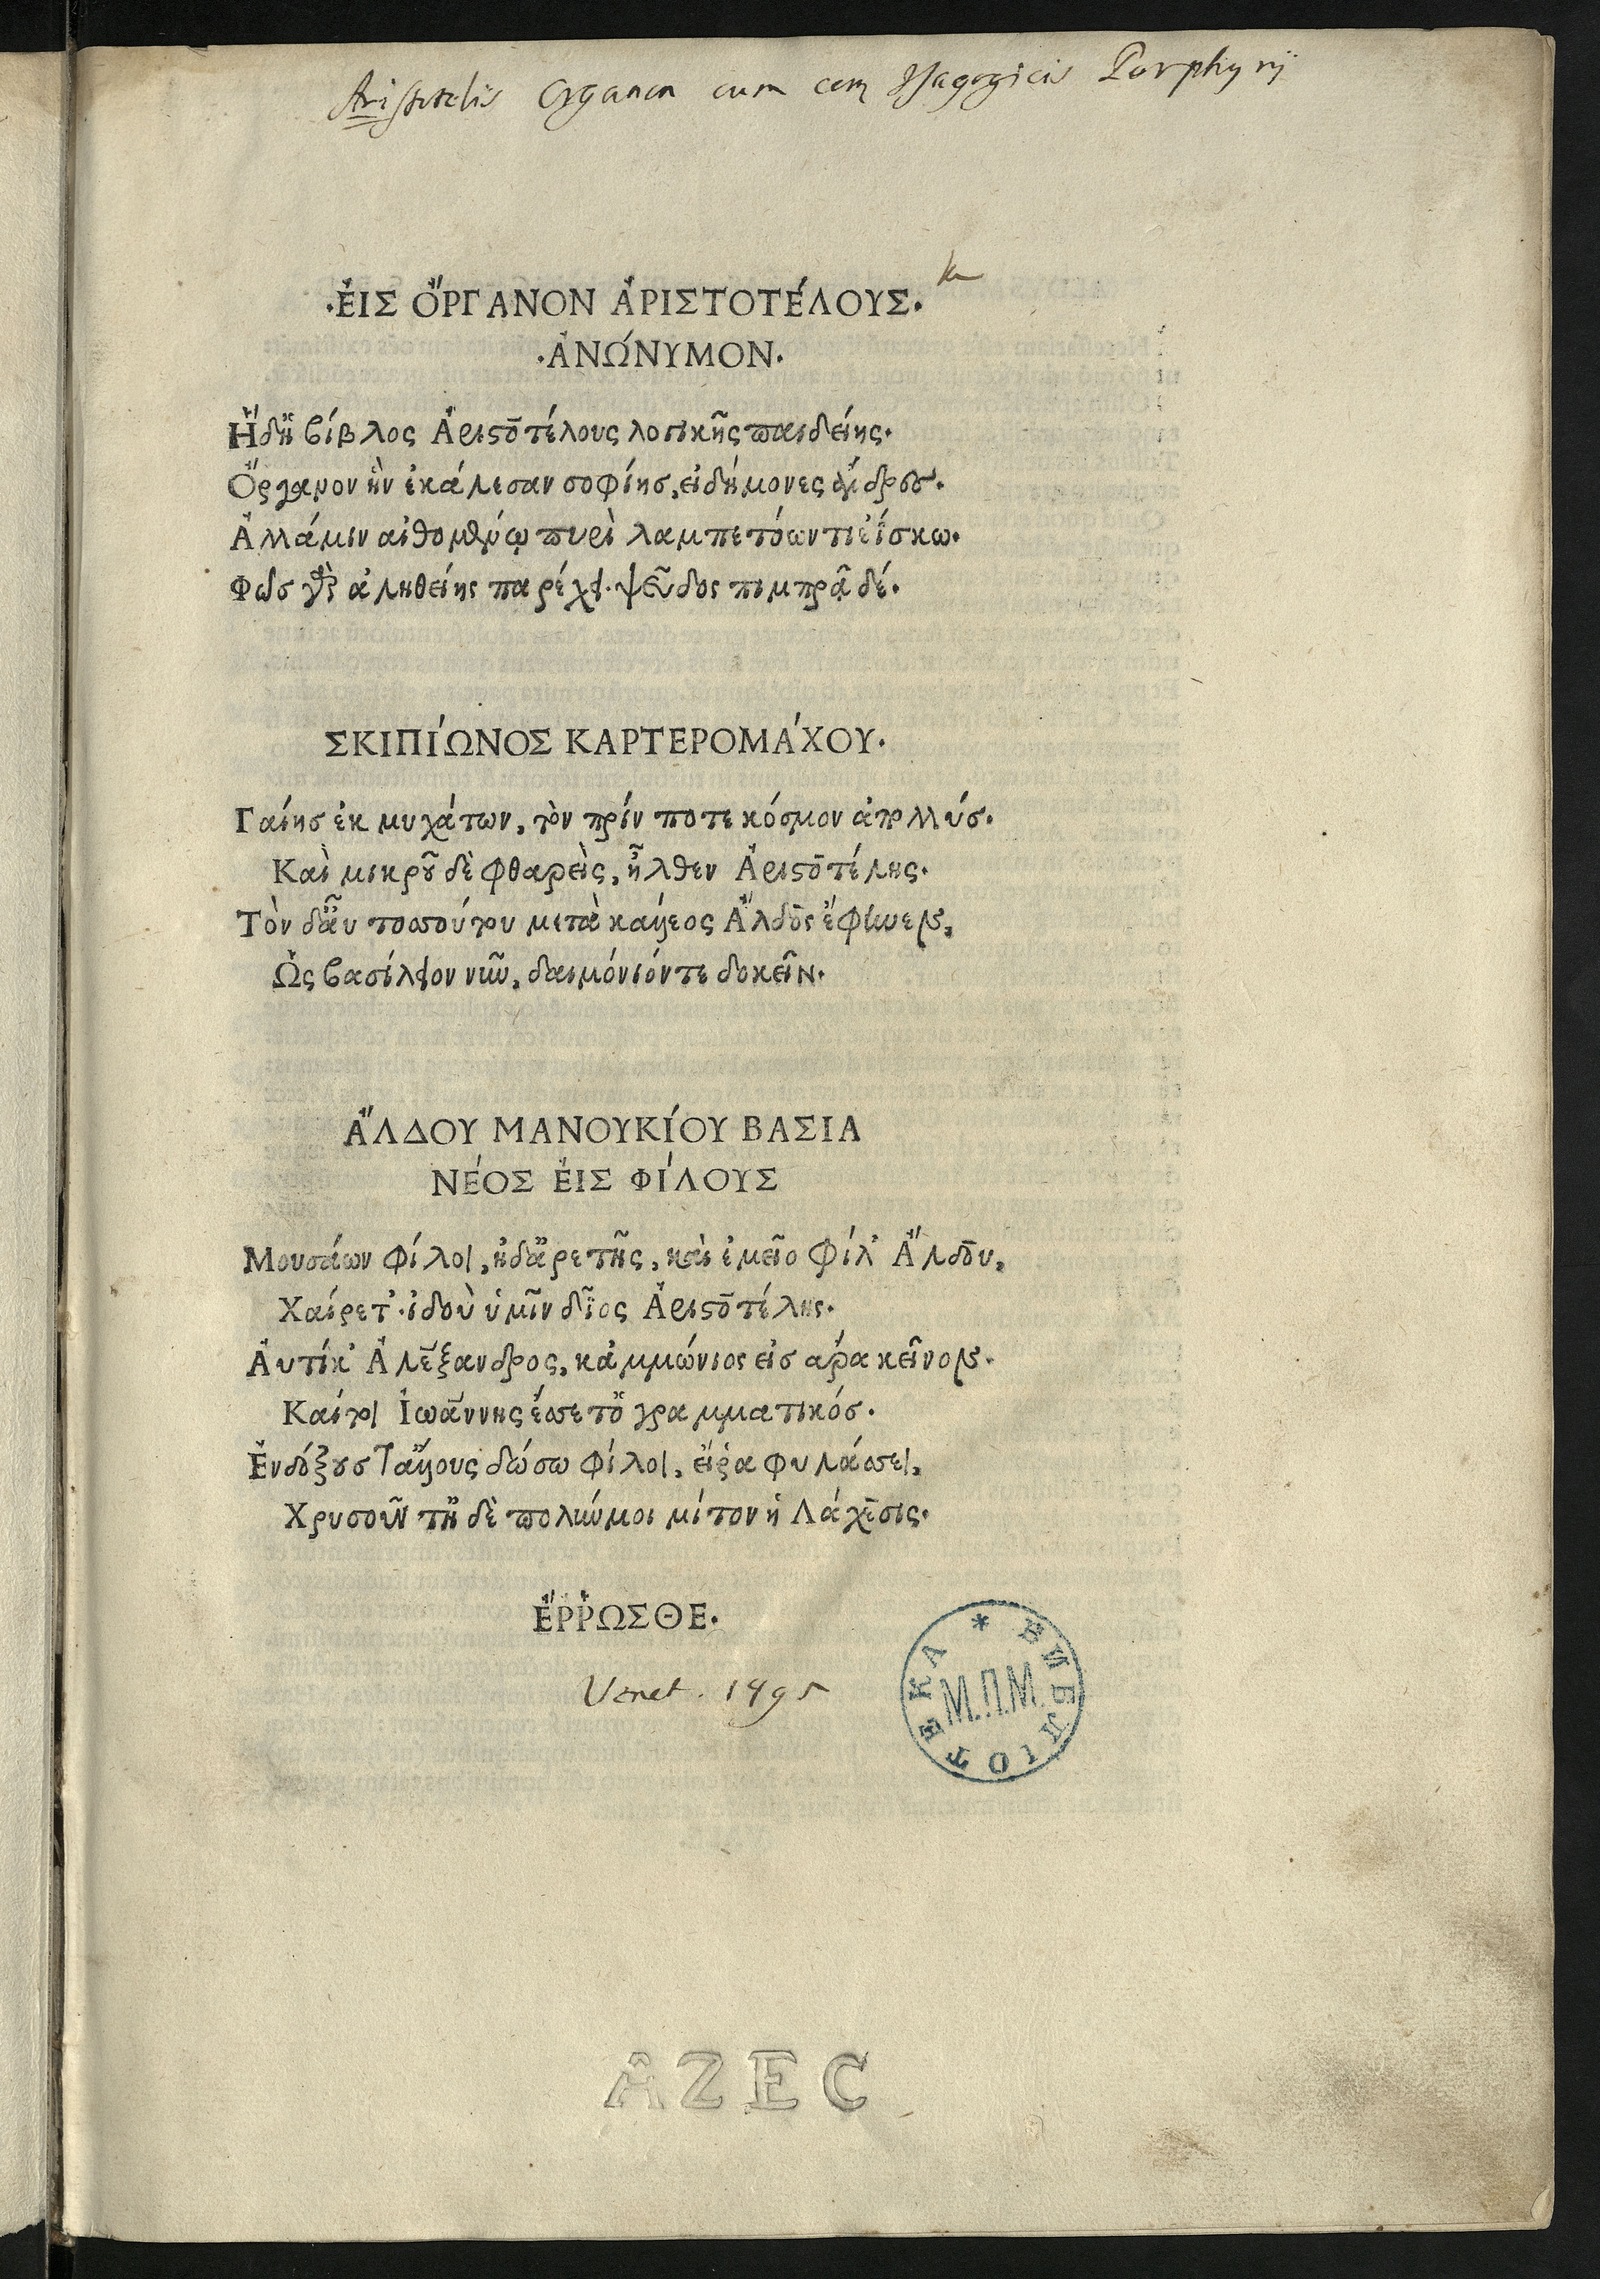 Aristotelis Organon cum cem Isagogicis Porphyrij
·ἘΙΣ ὌΡΓΑΝΟΝ ἈΡΙΣΤΟΤΈΛΟΥΣ·
·ἈΝΏΝΥΜΟΝ·
Ἥδ' ἡ βίβλος Ἀριστοτέλους λογικῆς παιδείης.
Ὄργανον ἣν ἐκάλεσαν σοφίης, εἰδήμονες ἄνδρες.
Ἀλλά μιν αἰθομένῳ πυρὶ λαμπετόωντι ἐΐσκω.
Φῶς γὰρ ἀληθείης παρέχει. ψεῦδος πιμπρᾷ δέ.
ΣΚΙΠΊΩΝΟΣ ΚΑΡΤΕΡΟΜΆΧΟΥ·
Γαίης ἐκ μυχάτων, τὸν πρίν ποτε κόσμον ἀπολλύς.
Καὶ μικροῦ δὲ φθαρεὶς, ἦλθεν Ἀριστοτέλης.
Τὸν δ' ἂν τοσσούτου μετὰ καύσεος Ἄλδος ἔφηνεν,
Ὡς βασίλειον νῦν, δαιμόνιόν τε δοκεῖν.
ἌΛΔΟΥ ΜΑΝΟΥΚΊΟΥ ΒΑΣΙΑ
ΝΈΟΣ ἘΙΣ ΦΊΛΟΥΣ
Μουσάων φίλοι, ἠδ' ἀρετῆς, καὶ ἐμεῖο φίλ' Ἄλδου,
Χαίρετ'. ἰδοὺ ὑμῖν δῖος Ἀριστοτέλης.
Ἀυτίκ' Ἀλέξανδρος, κἀμμώνιος εἰσ ἄρα κεῖνον.
Καίτοι Ἰωάννης ἕψεθ' ὁ γραμματικός.
Ἐνδόξους τ' ἄλλους δώσω φίλοι, εἴ ῥα φυλάσσει,
Χρυσοῦν τῇδε πολύν μοι μίτον ἡ Λάχεσις.
ἜΡΡΩΣΘΕ·
Venet. 1495
БИБЛІОТЕКА * М.П.М.
AZEC